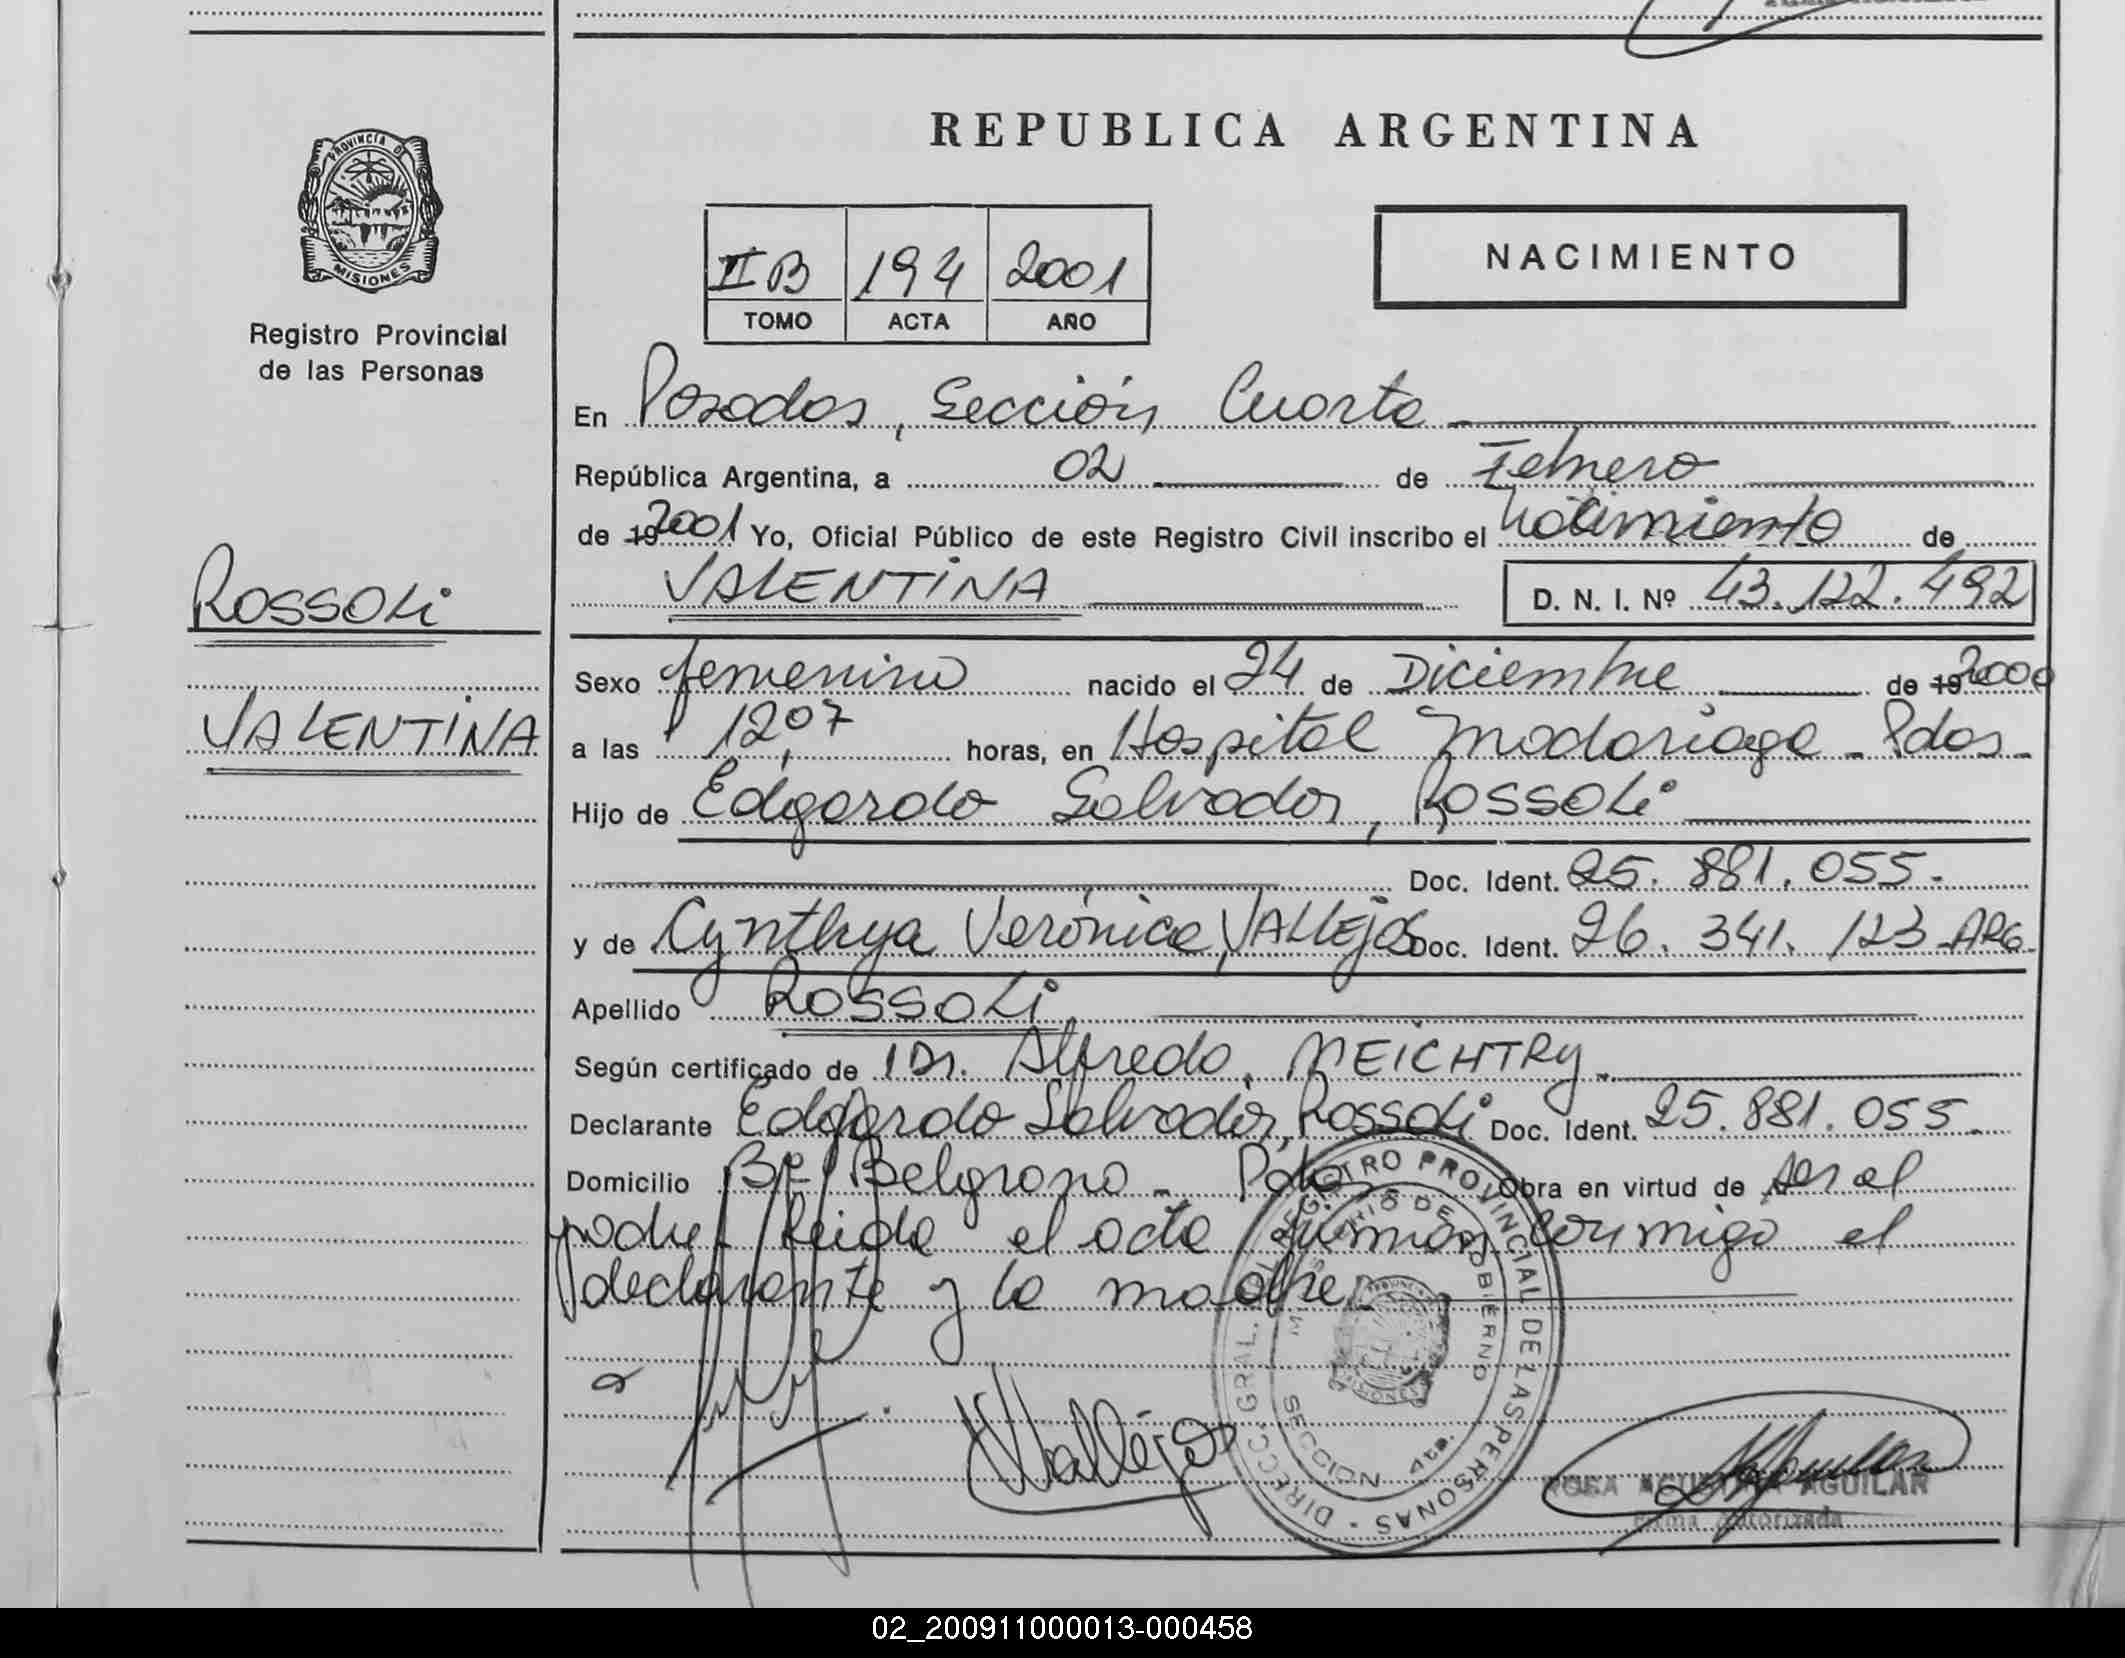 REPUBLICA ARGENTINA
PROVINCIA DE
MISIONES
Registro Provincial
de las Personas
II B 194 2001
TOMO ACTA AÑO
NACIMIENTO
En Posadas, Sección Cuarta
República Argentina, a 02 de Febrero
de 19 2001 Yo, Oficial Público de este Registro Civil inscribo el Nacimiento de
VALENTINA D. N. I. Nº 43.122.492
ROSSOLi
VALENTINA
Sexo femenino nacido el 24 de Diciembre de 19 2000
a las 12,07 horas, en Hospital Madariaga - Pdas -
Hijo de Edgardo Salvador, ROSSOLi
Doc. Ident. 25.881.055.
y de Cynthya Verónica, VALLEJOS Doc. Ident. 26.341.123 - ARG.
Apellido ROSSOLi
Según certificado de Dr. Alfredo, NEICHTRY.
Declarante Edgardo Salvador, Rossoli Doc. Ident. 25.881.055.
Domicilio Bº Belgrano - Pdas Obra en virtud de ser el
padre. Leida el acta firman conmigo el
declarante y la madre.
Vallejos
DIRECC. GRAL. REGISTRO PROVINCIAL DE LAS PERSONAS
MINISTERIO DE GOBIERNO
MISIONES
SECCION 4ta.
AGUILAR
Firma Autorizada
02_200911000013-000458